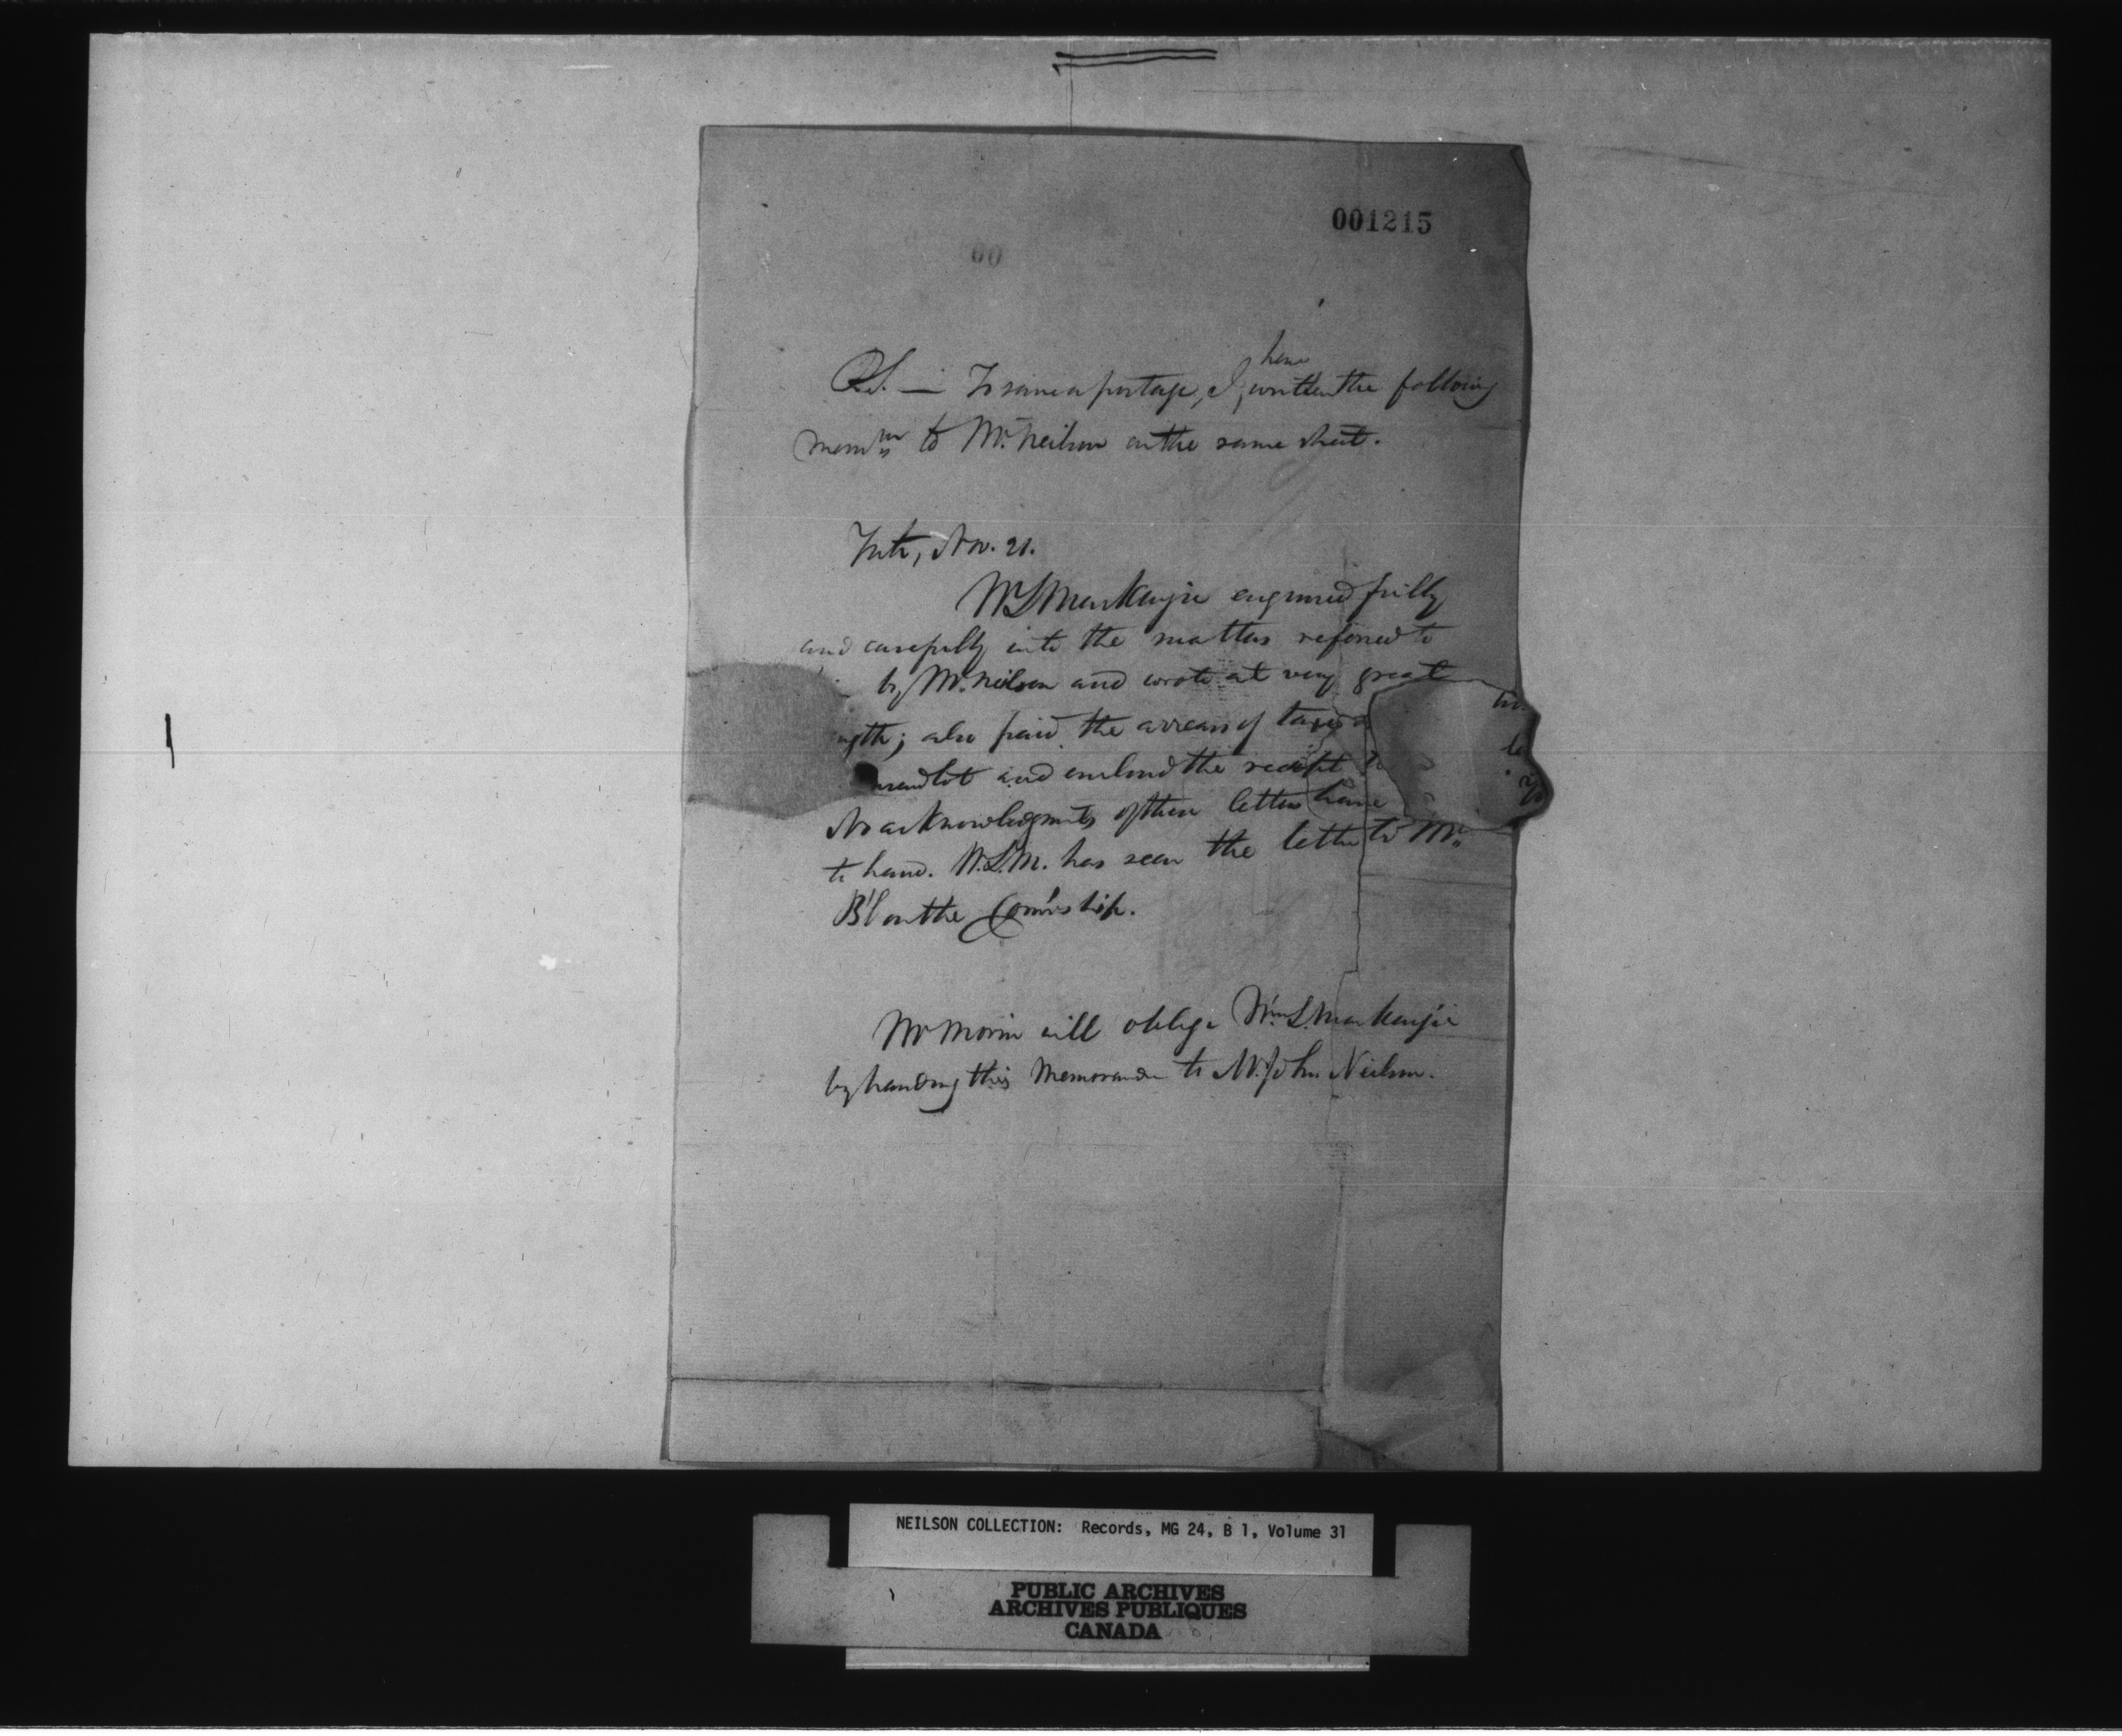 001215
00
P.S. — To save a postage, I have written the following
Mem^m to Mr. Neilson on the same sheet.
Nov. 21.
W L Mackenzie enquired fully
and carefully into the matters referred to
by Mr. Neilson and wrote at very great
ngth; also paid the arrears of taxes
and enclosed the receipt
No acknowledgments of these letters have
to hand. W.L.M. has seen the letter to Mr.
B'l on the
Mr Morin will oblige Wm. L. Mackenzie
by handing this Memoranda to Mr. John Neilson.
NEILSON COLLECTION: Records, MG 24, B 1, Volume 31
PUBLIC ARCHIVES
ARCHIVES PUBLIQUES
CANADA